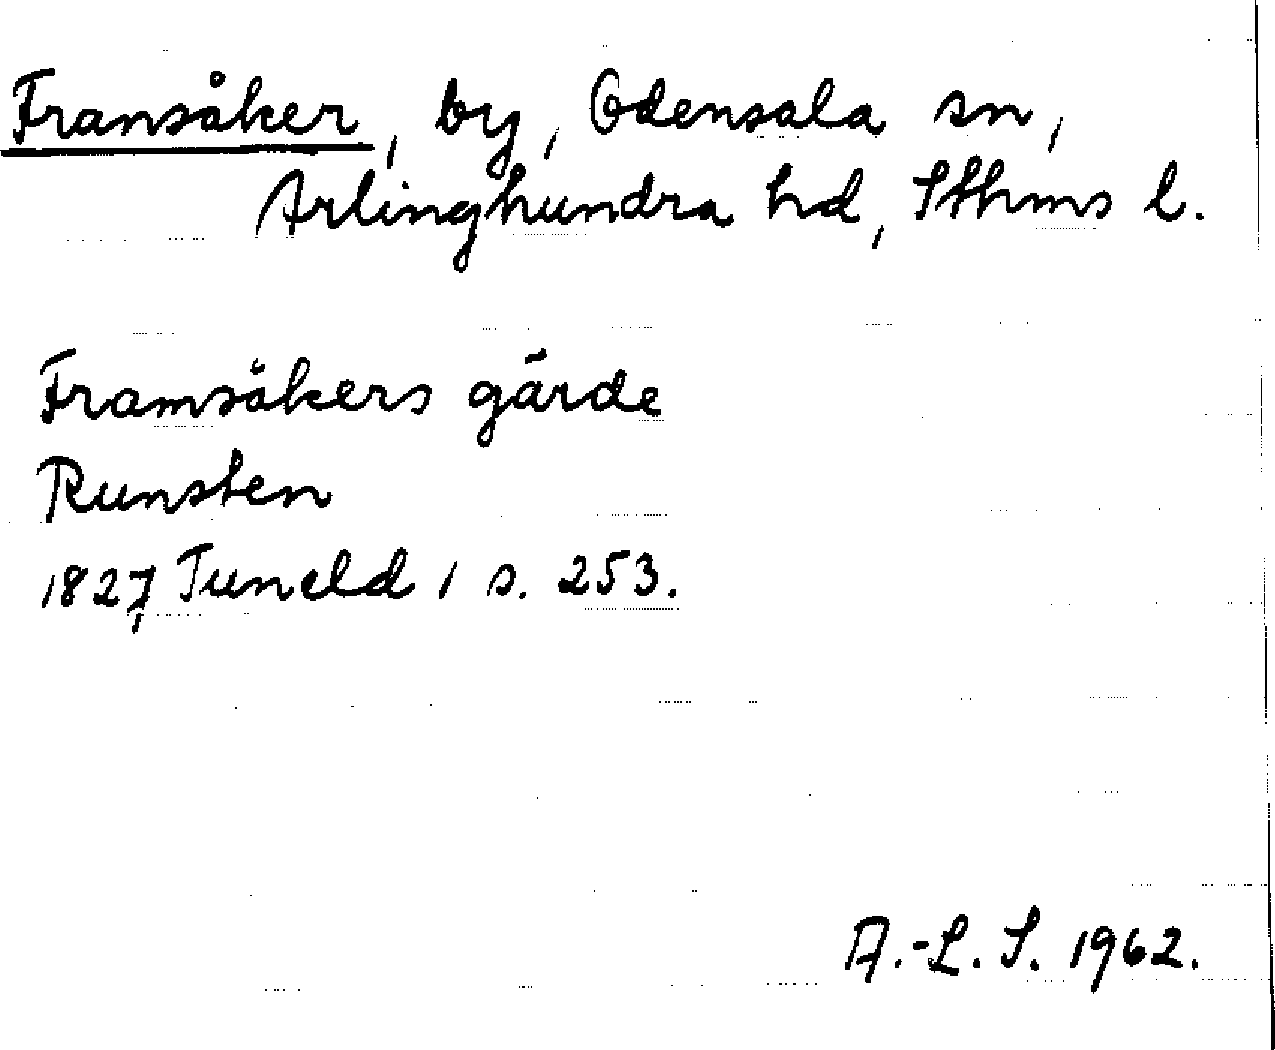 Fransåker, by, Odensala sn,
Ärlinghundra hd, Sthms l.
Framsåkers gärde
Runsten
1827, Tuneld 1 s. 253.
A.-L. S. 1962.